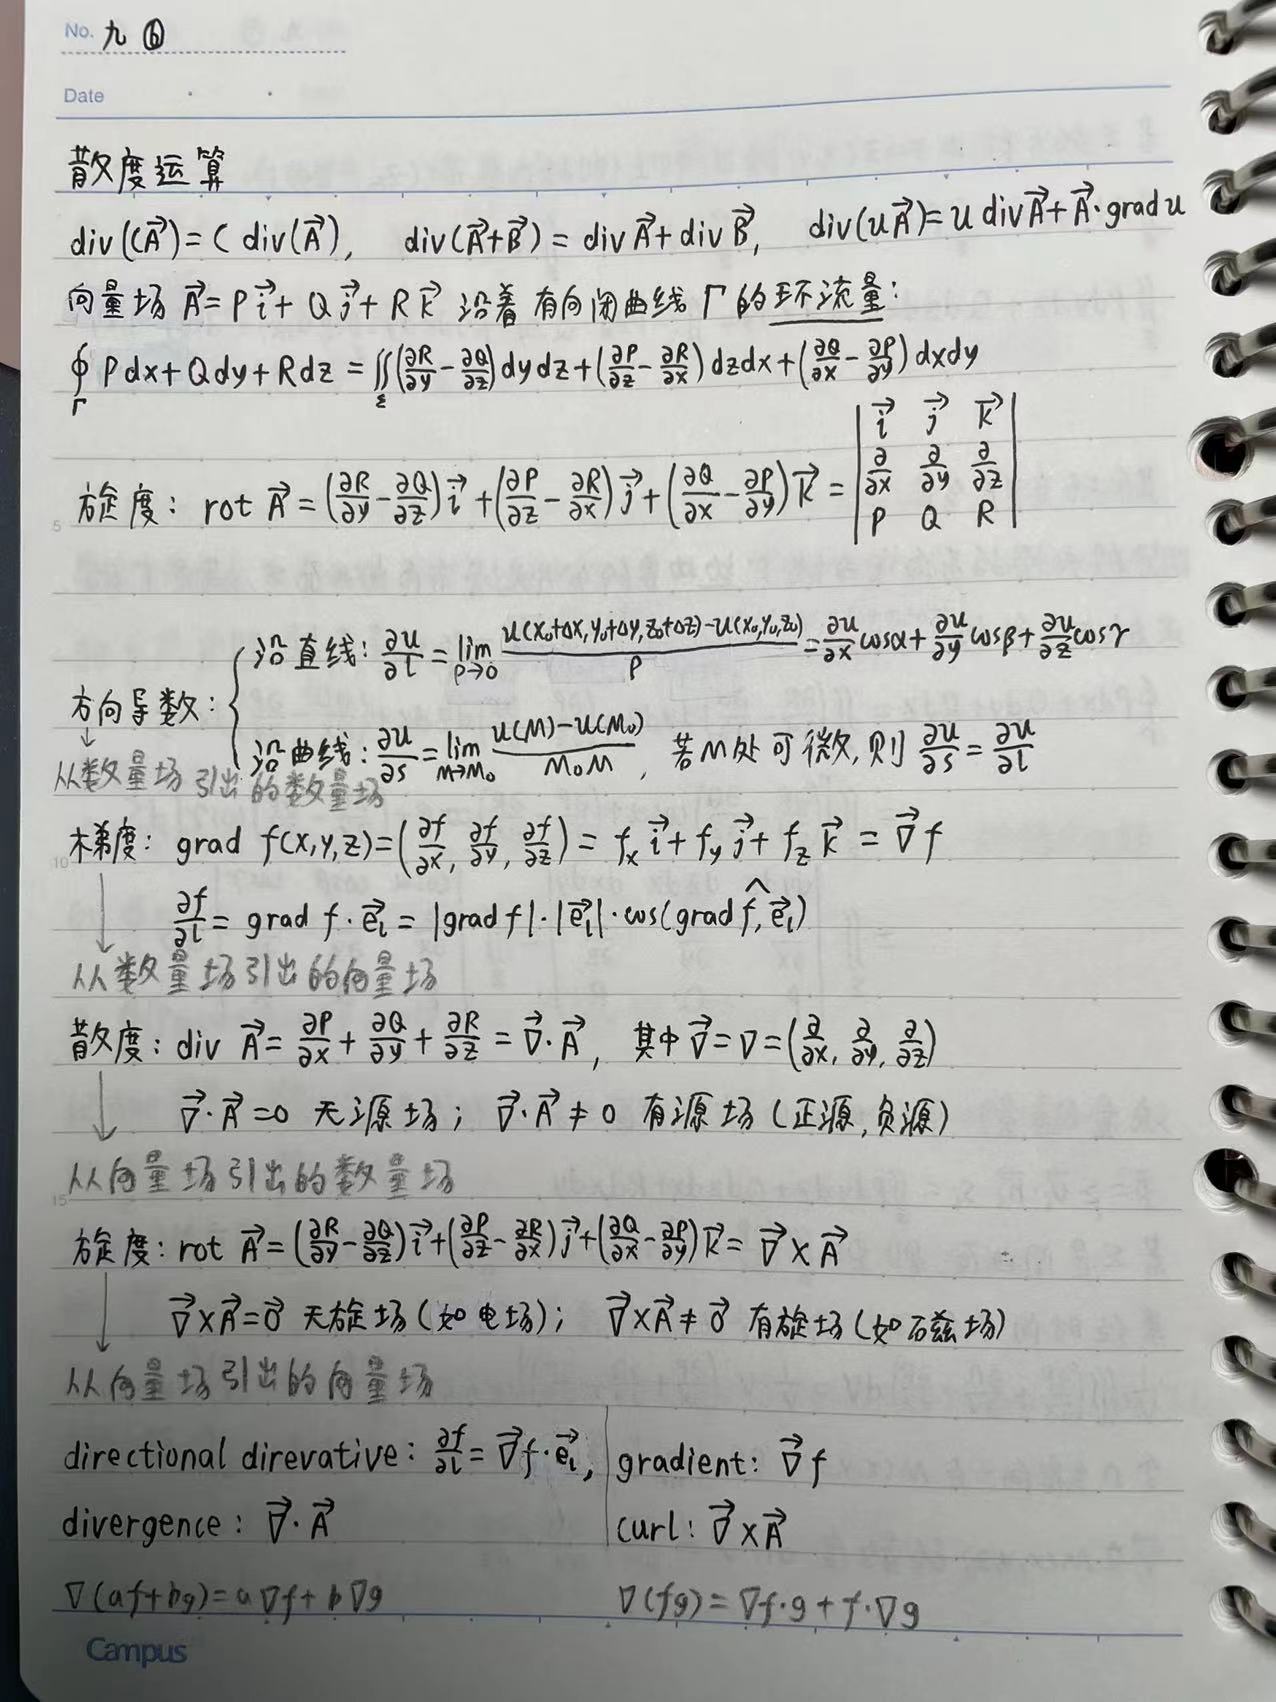 No. 九 ⑯
Date
散度运算
div(CA⃗)=C div(A⃗), div(A⃗+B⃗)=divA⃗+divB⃗, div(uA⃗)=u divA⃗+A⃗·grad u
向量场 A⃗=Pi⃗+Qj⃗+Rk⃗ 沿着有向闭曲线Γ的环流量:
∮_Γ Pdx+Qdy+Rdz=∬_Σ(∂R/∂y-∂Q/∂z)dydz+(∂P/∂z-∂R/∂x)dzdx+(∂Q/∂x-∂P/∂y)dxdy
旋度: rot A⃗=(∂R/∂y-∂Q/∂z)i⃗+(∂P/∂z-∂R/∂x)j⃗+(∂Q/∂x-∂P/∂y)k⃗=|i⃗ j⃗ k⃗; ∂/∂x ∂/∂y ∂/∂z; P Q R|
5
沿直线: ∂u/∂l=lim_{ρ→0} (u(x₀+Δx,y₀+Δy,z₀+Δz)-u(x₀,y₀,z₀))/ρ=∂u/∂x cosα+∂u/∂y cosβ+∂u/∂z cosγ
方向导数:
沿曲线: ∂u/∂s=lim_{M→M₀} (u(M)-u(M₀))/M₀M, 若M处可微,则 ∂u/∂s=∂u/∂l
↓
从数量场引出的数量场
梯度: grad f(x,y,z)=(∂f/∂x, ∂f/∂y, ∂f/∂z)=f_x i⃗+f_y j⃗+f_z k⃗=∇⃗f
10
∂f/∂l=grad f·e⃗_l=|grad f|·|e⃗_l|·cos(grad f,^e⃗_l)
↓
从数量场引出的向量场
散度: div A⃗=∂P/∂x+∂Q/∂y+∂R/∂z=∇⃗·A⃗, 其中∇⃗=∇=(∂/∂x, ∂/∂y, ∂/∂z)
∇⃗·A⃗=0 无源场; ∇⃗·A⃗≠0 有源场(正源,负源)
↓
从向量场引出的数量场
15
旋度: rot A⃗=(∂R/∂y-∂Q/∂z)i⃗+(∂P/∂z-∂R/∂x)j⃗+(∂Q/∂x-∂P/∂y)k⃗=∇⃗×A⃗
∇⃗×A⃗=0⃗ 无旋场(如电场); ∇⃗×A⃗≠0⃗ 有旋场(如磁场)
↓
从向量场引出的向量场
directional direvative: ∂f/∂l=∇⃗f·e⃗_l, gradient: ∇⃗f
divergence: ∇⃗·A⃗ curl: ∇⃗×A⃗
∇(af+bg)=a∇f+b∇g ∇(fg)=∇f·g+f·∇g
Campus